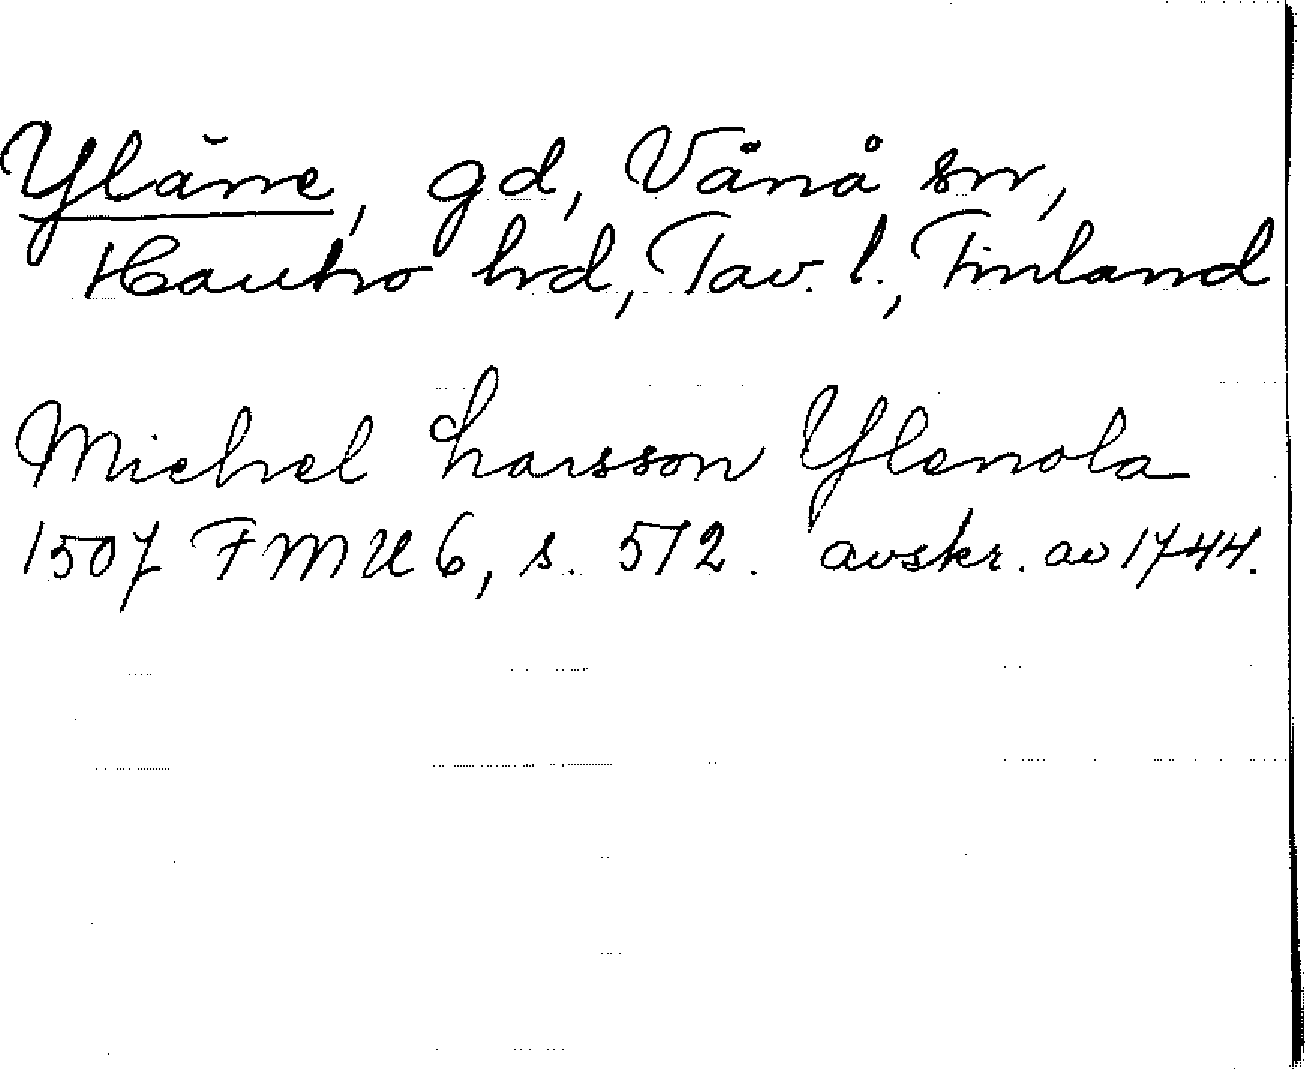 Yläne, gd, Vånå sn,
Hauho hrd, Tav. l., Finland
Michel Larsson Ylenola
1507 FMU 6, s. 572. avskr. av 1744.